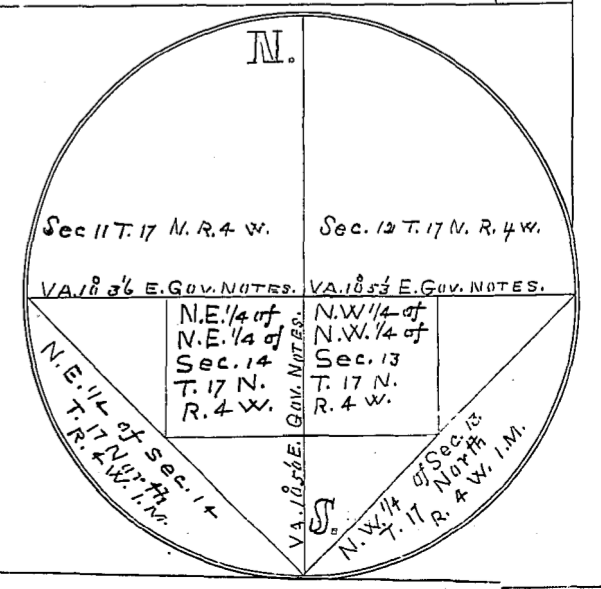 N.
Sec 11 T. 17 N. R. 4 W.
Sec. 12 T. 17 N. R. 4 W.
VA. 10° 36' E. GOV. NOTES.
VA. 10° 53' E. GOV. NOTES.
N.E. 1/4 of
N.E. 1/4 of
Sec. 14
T. 17 N.
R. 4 W.
N.W 1/4 of
N.W. 1/4 of
Sec. 13
T. 17 N.
R. 4 W.
VA. 10° 56' E. GOV. NOTES.
N.E. 1/4 of Sec. 14
T. 17 North
R. 4 W. I.M.
N.W 1/4 of Sec. 13
T. 17 North
R. 4 W. I.M.
S.